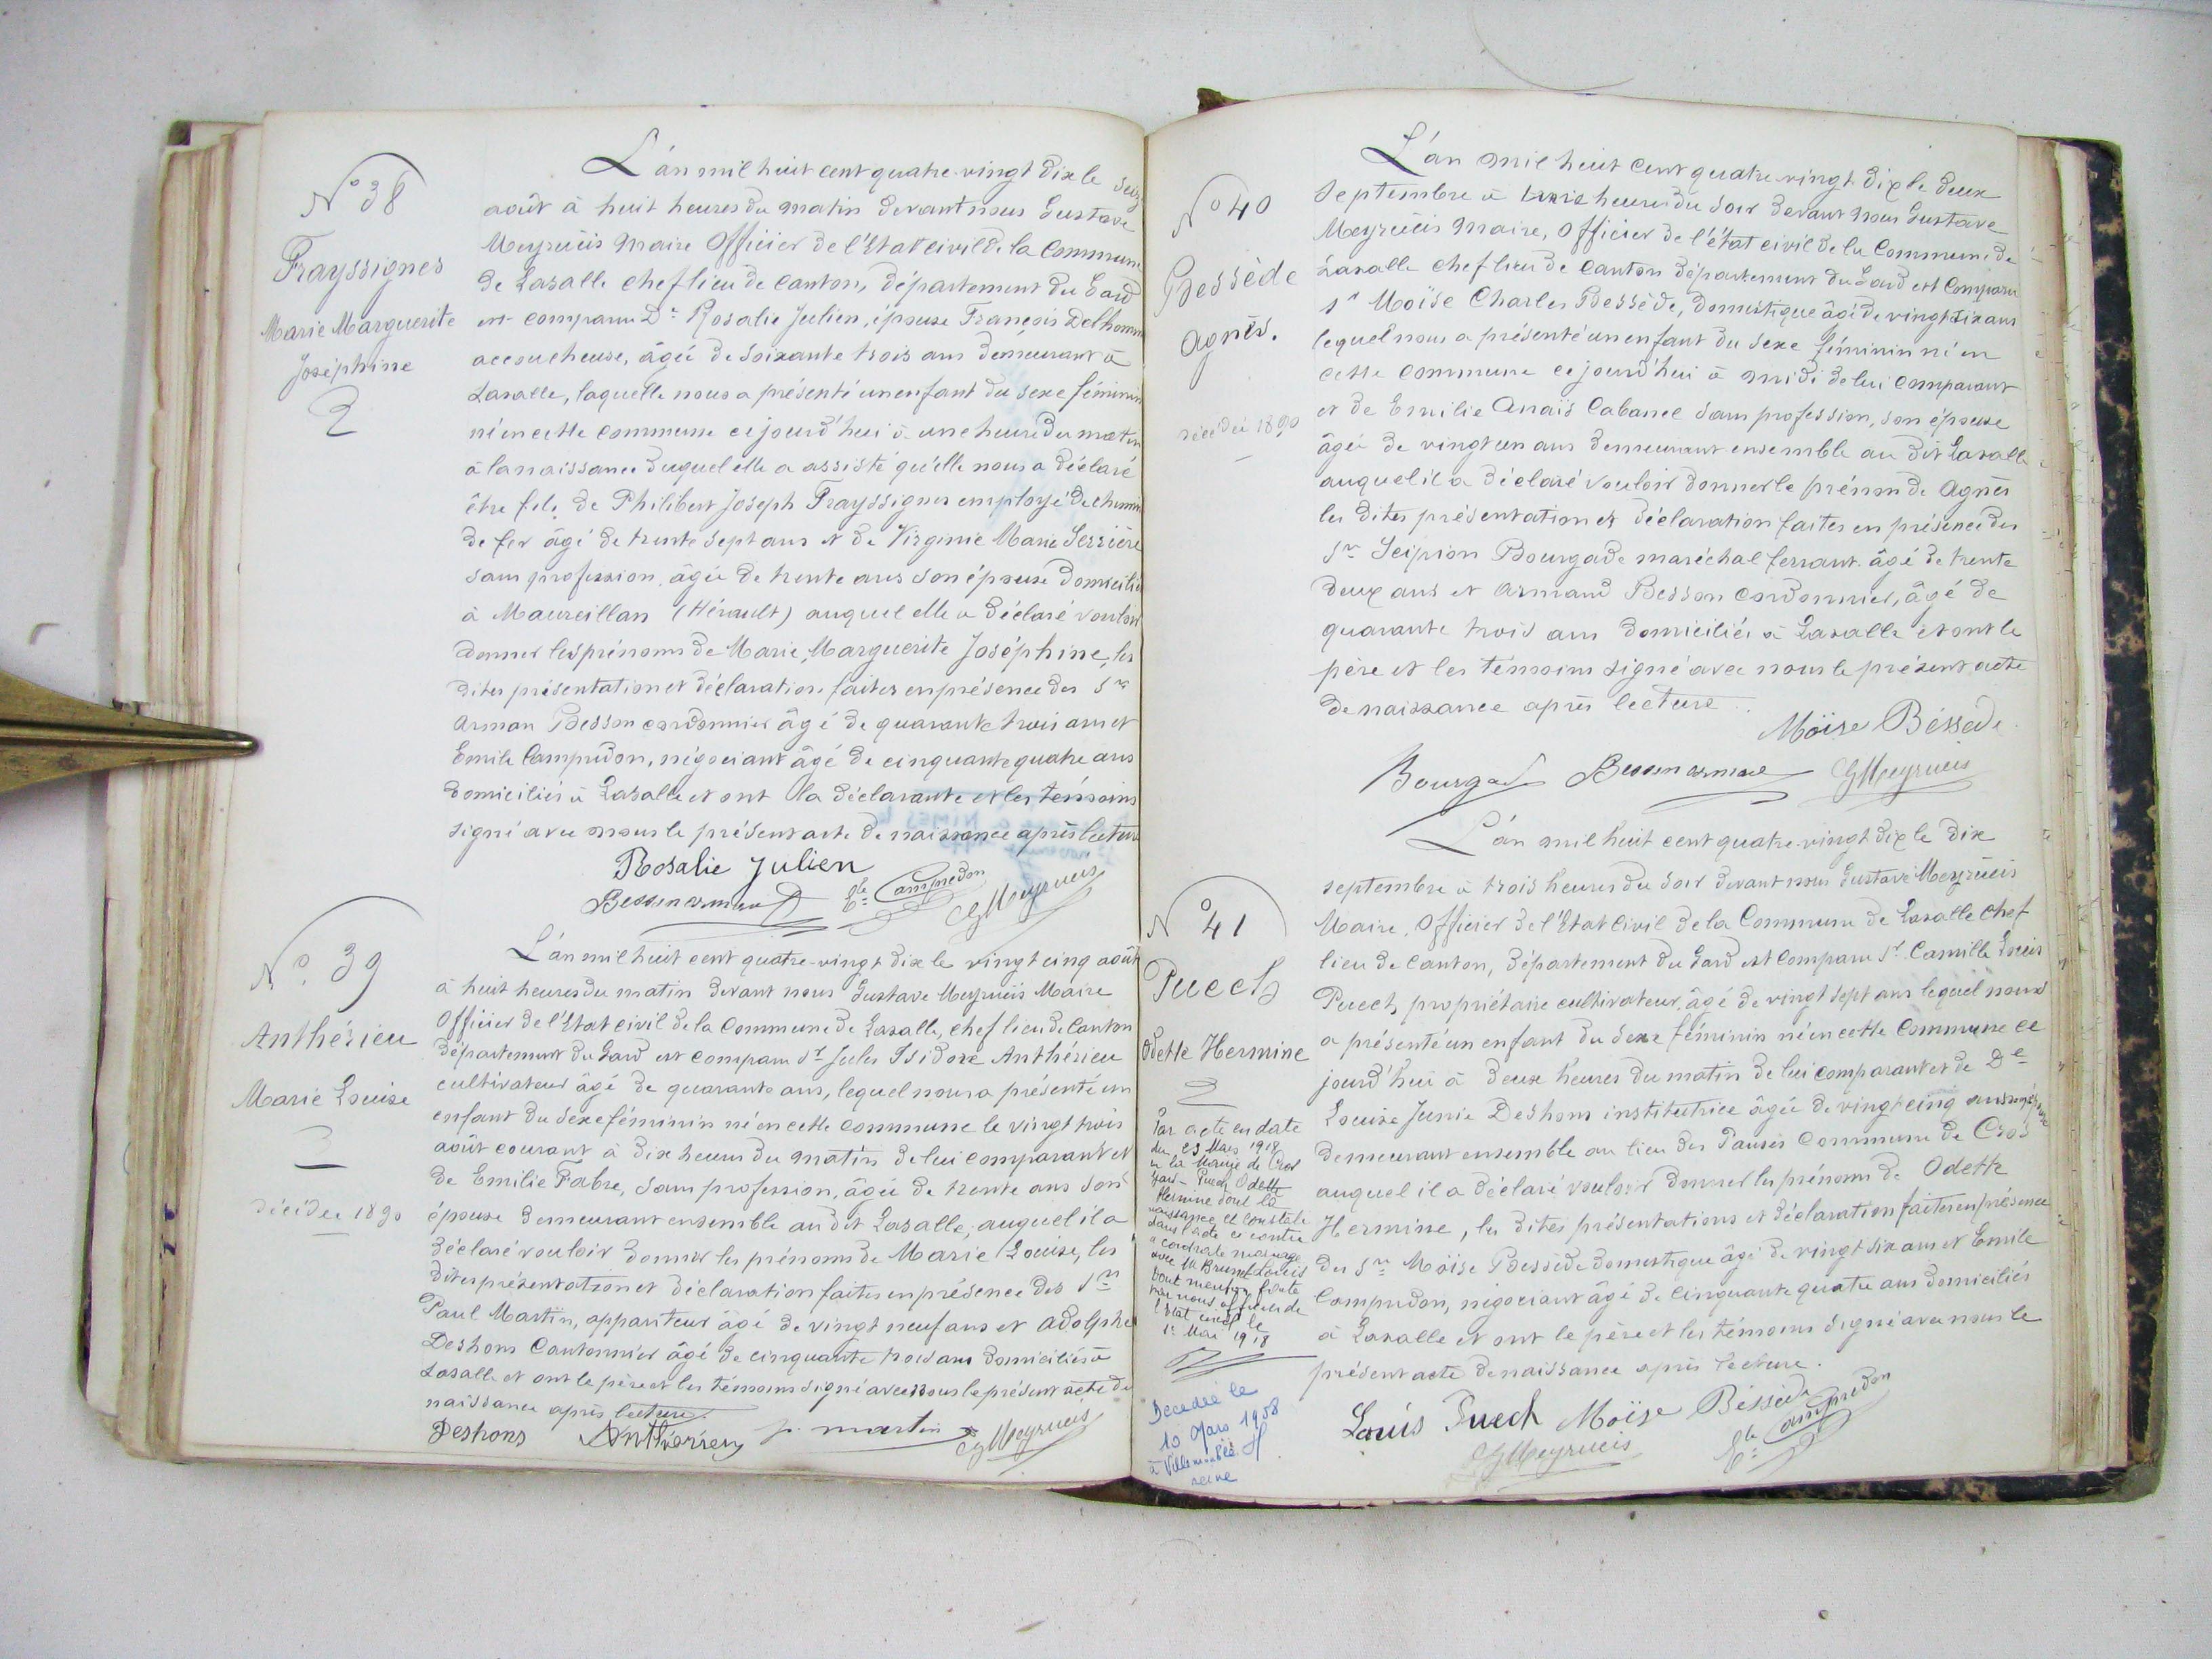 N° 38
Frayssignes
Marie Marguerite
Joséphine
L'an mil huit cent quatre-vingt dix le seize
août à huit heures du matin devant nous Gustave
Meyrueis Maire Officier de l'Etat civil de la Commune
de Lasalle chef lieu de canton, département du Gard
est comparue De Rosalie Julien, épouse François Delhomme
accoucheuse, âgée de soixante trois ans demeurant à
Lasalle, laquelle nous a présenté un enfant du sexe féminin
né en cette commune ce jourd'hui à une heure du matin
à la naissance duquel elle a assisté qu'elle nous a déclaré
être fils de Philibert Joseph Frayssignes employé de chemin
de fer âgé de trente sept ans et de Virginie Marie Serrière
sans profession, âgée de trente ans son épouse domicilié
à Maureillan (Hérault) auquel elle a déclaré vouloir
donner les prénoms de Marie, Marguerite Joséphine, les
dites présentation et déclaration faites en présence des Srs
Arman Besson cordonnier âgé de quarante trois ans et
Emile Campredon, négociant âgé de cinquante quatre ans
domiciliés à Lasalle et ont la déclarante et les témoins
signé avec nous le présent acte de naissance après lecture
Rosalie Julien
Besson armand Ele Campredon G Meyrueis
N° 39
Anthérieu
Marie Louise
décédée 1890
L'an mil huit cent quatre-vingt dix le vingt cinq août
à huit heures du matin devant nous Gustave Meyrueis Maire
Officier de l'Etat civil de la Commune de Lasalle, chef lieu de Canton
département du Gard est comparu Sr Jules Isidore Anthérieu
cultivateur âgé de quarante ans, lequel nous a présenté un
enfant du sexe féminin né en cette commune le vingt trois
août courant à dix heures du matin de lui comparant et
de Emilie Fabre, sans profession, âgée de trente ans son
épouse demeurant ensemble au dit Lasalle, auquel il a
déclaré vouloir donner les prénoms de Marie Louise, les
dites présentation et déclaration faites en présence des Srs
Paul Martin, appariteur âgé de vingt neuf ans et Adolphe
Deshons Cantonnier âgé de cinquante trois ans domiciliés à
Lasalle et ont le père et les témoins signé avec nous le présent acte de
naissance après lecture.
Deshons Anthérieu p. martin G Meyrueis
N° 40
Bessède
Agnès.
décédée 1890
L'an mil huit cent quatre-vingt dix le deux
septembre à trois heures du soir devant nous Gustave
Meyrueis Maire, Officier de l'état civil de la Commune de
Lasalle chef lieu de canton département du Gard est comparu
Sr Moïse Charles Bessède, domestique âgé de vingt six ans
lequel nous a présenté un enfant du sexe féminin né en
cette commune ce jourd'hui à midi de lui comparant
et de Emilie Anaïs Cabanel sans profession, son épouse
âgée de vingt un ans demeurant ensemble au dit Lasalle
auquel il a déclaré vouloir donner le prénom de Agnès
les dites présentation et déclaration faites en présence des
Srs Scipion Bourgade maréchal ferrant âgé de trente
deux ans et Armand Besson cordonnier, âgé de
quarante trois ans domiciliés à Lasalle et ont le
père et les témoins signé avec nous le présent acte
de naissance après lecture.
Moïse Béssède
Bourgade Besson armand G Meyrueis
N° 41
Puech
Odette Hermine
Par acte en date
du 23 Mars 1918
à la Mairie de Cros
Gard - Puech Odette
Hermine dont la
naissance est constatée
dans l'acte ci contre
a contracté mariage
avec M. Brun Louis
dont mention faite
par nous officier de
l'Etat civil le
1er Mai 1918
Décédée le
10 Mars 1958
à Villemomble
seine
L'an mil huit cent quatre-vingt dix le dix
septembre à trois heures du soir devant nous Gustave Meyrueis
Maire, Officier de l'Etat Civil de la Commune de Lasalle chef
lieu de canton, département du Gard est comparu Sr Camille Louis
Puech, propriétaire cultivateur, âgé de vingt sept ans lequel nous
a présenté un enfant du sexe féminin né en cette Commune ce
jourd'hui à deux heures du matin de lui comparant et de De
Louise Junie Deshons institutrice âgée de vingt cinq ans son épouse
demeurant ensemble au lieu des Pauses Commune de Cros
auquel il a déclaré vouloir donner les prénoms de Odette
Hermine, les dites présentations et déclaration faites en présence
des Srs Moïse Bessède domestique âgé de vingt six ans et Emile
Campredon, négociant âgé de cinquante quatre ans domiciliés
à Lasalle et ont le père et les témoins signé avec nous le
présent acte de naissance après lecture.
Louis Puech Moïse Béssède
G Meyrueis Ele Campredon